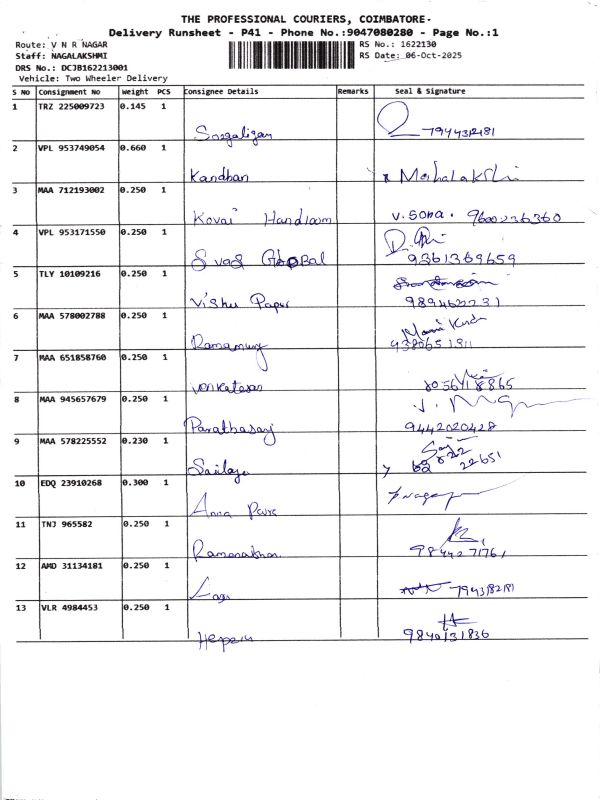 THE PROFESSIONAL COURIERS, COIMBATORE-
Delivery Runsheet - P41 - Phone No.:9047080280 - Page No.:1
Route: V N R NAGAR
RS No.: 1622130
Staff: NAGALAKSHMI
RS Date: 06-Oct-2025
DRS No.: DCJB162213001
Vehicle: Two Wheeler Delivery
S No Consignment No Weight PCS Consignee Details Remarks Seal & Signature
1 TRZ 225009723 0.145 1
2 VPL 953749054 0.660 1
Kandhan Mahalakshi
3 MAA 712193002 0.250 1
Kovai Handloom V. Sona. 9600236360
4 VPL 953171550 0.250 1
Svas Global 9361369659
5 TLY 10109216 0.250 1
Vishu Paper
6 MAA 578002788 0.250 1
Ramamurty
7 MAA 651858760 0.250 1
Venkatesan
8 MAA 945657679 0.250 1
9442020428
9 MAA 578225552 0.230 1
Sailaja
10 EDQ 23910268 0.300 1
11 TNJ 965582 0.250 1
9844271761
12 AMD 31134181 0.250 1
13 VLR 4984453 0.250 1
9840131836